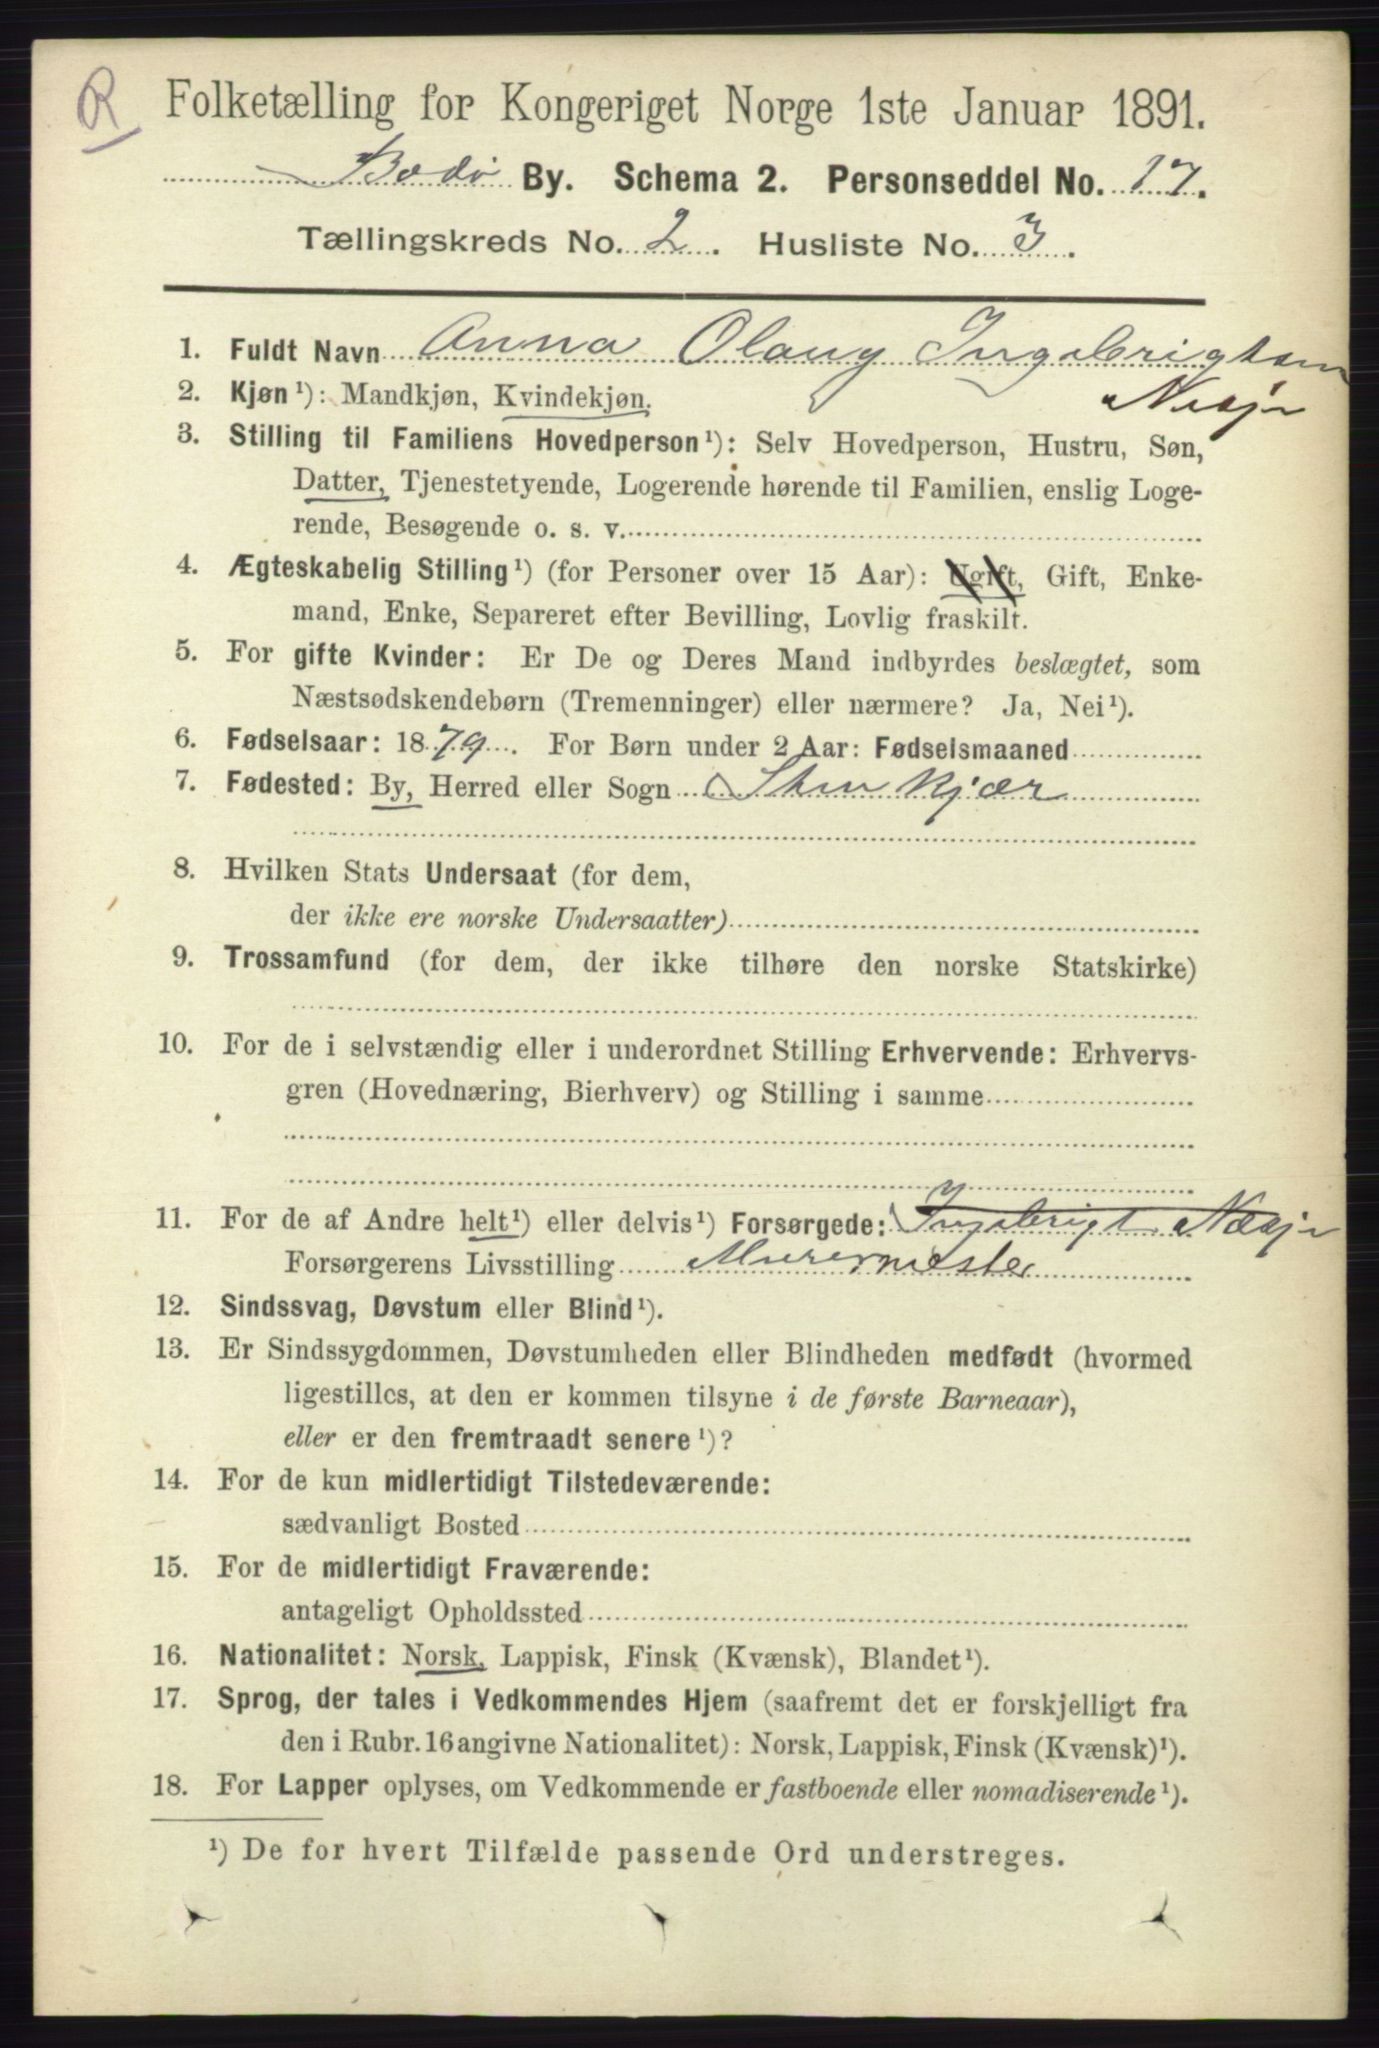 R
Folketælling for Kongeriget Norge 1ste Januar 1891.
Bodø By. Schema 2. Personseddel No. 17.
Tællingskreds No. 2. Husliste No. 3.
1. Fuldt Navn Anna Olaug Ingebrigtsen
Nesje
2. Kjøn¹): Mandkjøn, Kvindekjøn.
3. Stilling til Familiens Hovedperson¹): Selv Hovedperson, Hustru, Søn,
Datter, Tjenestetyende, Logerende hørende til Familien, enslig Loge-
rende, Besøgende o. s. v.
4. Ægteskabelig Stilling¹) (for Personer over 15 Aar): Ugift, Gift, Enke-
mand, Enke, Separeret efter Bevilling, Lovlig fraskilt.
5. For gifte Kvinder: Er De og Deres Mand indbyrdes beslægtet, som
Næstsødskendebørn (Tremenninger) eller nærmere? Ja, Nei¹).
6. Fødselsaar: 1879. For Børn under 2 Aar: Fødselsmaaned
7. Fødested: By, Herred eller Sogn Stenkjær
8. Hvilken Stats Undersaat (for dem,
der ikke ere norske Undersaatter)
9. Trossamfund (for dem, der ikke tilhøre den norske Statskirke)
10. For de i selvstændig eller i underordnet Stilling Erhvervende: Erhvervs-
gren (Hovednæring, Bierhverv) og Stilling i samme
11. For de af Andre helt¹) eller delvis¹) Forsørgede: Ingebrigt Næsje
Forsørgerens Livsstilling Murermester
12. Sindssvag, Døvstum eller Blind¹).
13. Er Sindssygdommen, Døvstumheden eller Blindheden medfødt (hvormed
ligestilles, at den er kommen tilsyne i de første Barneaar),
eller er den fremtraadt senere¹)?
14. For de kun midlertidigt Tilstedeværende:
sædvanligt Bosted
15. For de midlertidigt Fraværende:
antageligt Opholdssted
16. Nationalitet: Norsk, Lappisk, Finsk (Kvænsk), Blandet¹).
17. Sprog, der tales i Vedkommendes Hjem (saafremt det er forskjelligt fra
den i Rubr. 16 angivne Nationalitet): Norsk, Lappisk, Finsk (Kvænsk)¹).
18. For Lapper oplyses, om Vedkommende er fastboende eller nomadiserende¹).
¹) De for hvert Tilfælde passende Ord understreges.